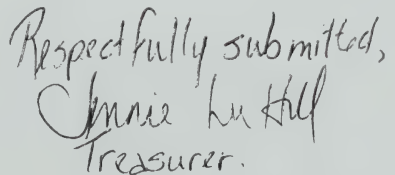 Respectfully submitted,
Annie Lu Hill
Treasurer.